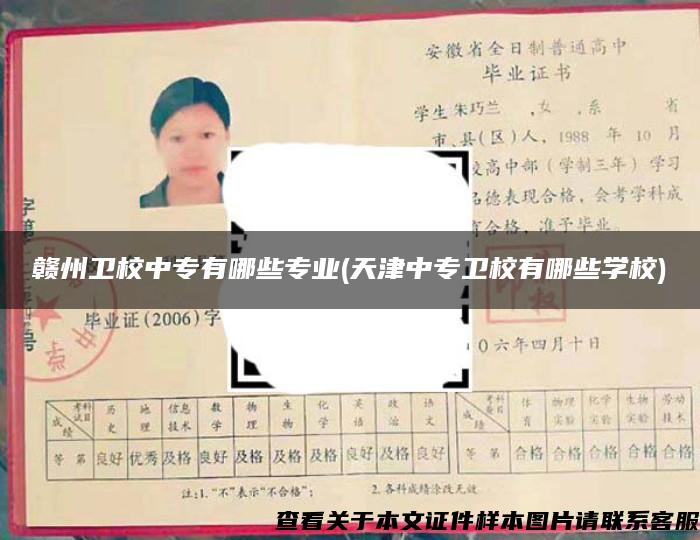 安徽省全日制普通高中
毕业证书
学生朱巧兰 ,女 ,系 省
市、县(区)人, 1988 年 10 月
校高中部(学制三年)学习
德表现合格,会考学科成
合格,准予毕业。
赣州卫校中专有哪些专业(天津中专卫校有哪些学校)
毕业证(2006)字
号
印权
〇六年四月十日
考试科目 历史 地理 信息技术 数学 物理 生物 化学 英语 政治 语文
成绩
等第 良好 优秀 及格 良好 及格 及格 及格 良好 良好 良好
考查科目 体育 物理实验 化学实验 生物实验 劳动技术
成绩
等第 合格 合格 合格 合格 合格
注:1.“不”表示“不合格”; 2.各科成绩涂改无效
查看关于本文证件样本图片请联系客服